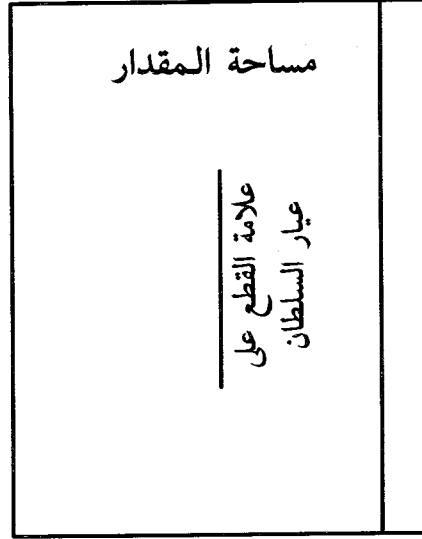 مساحة المقدار
علامة القطع على
عيار السلطان